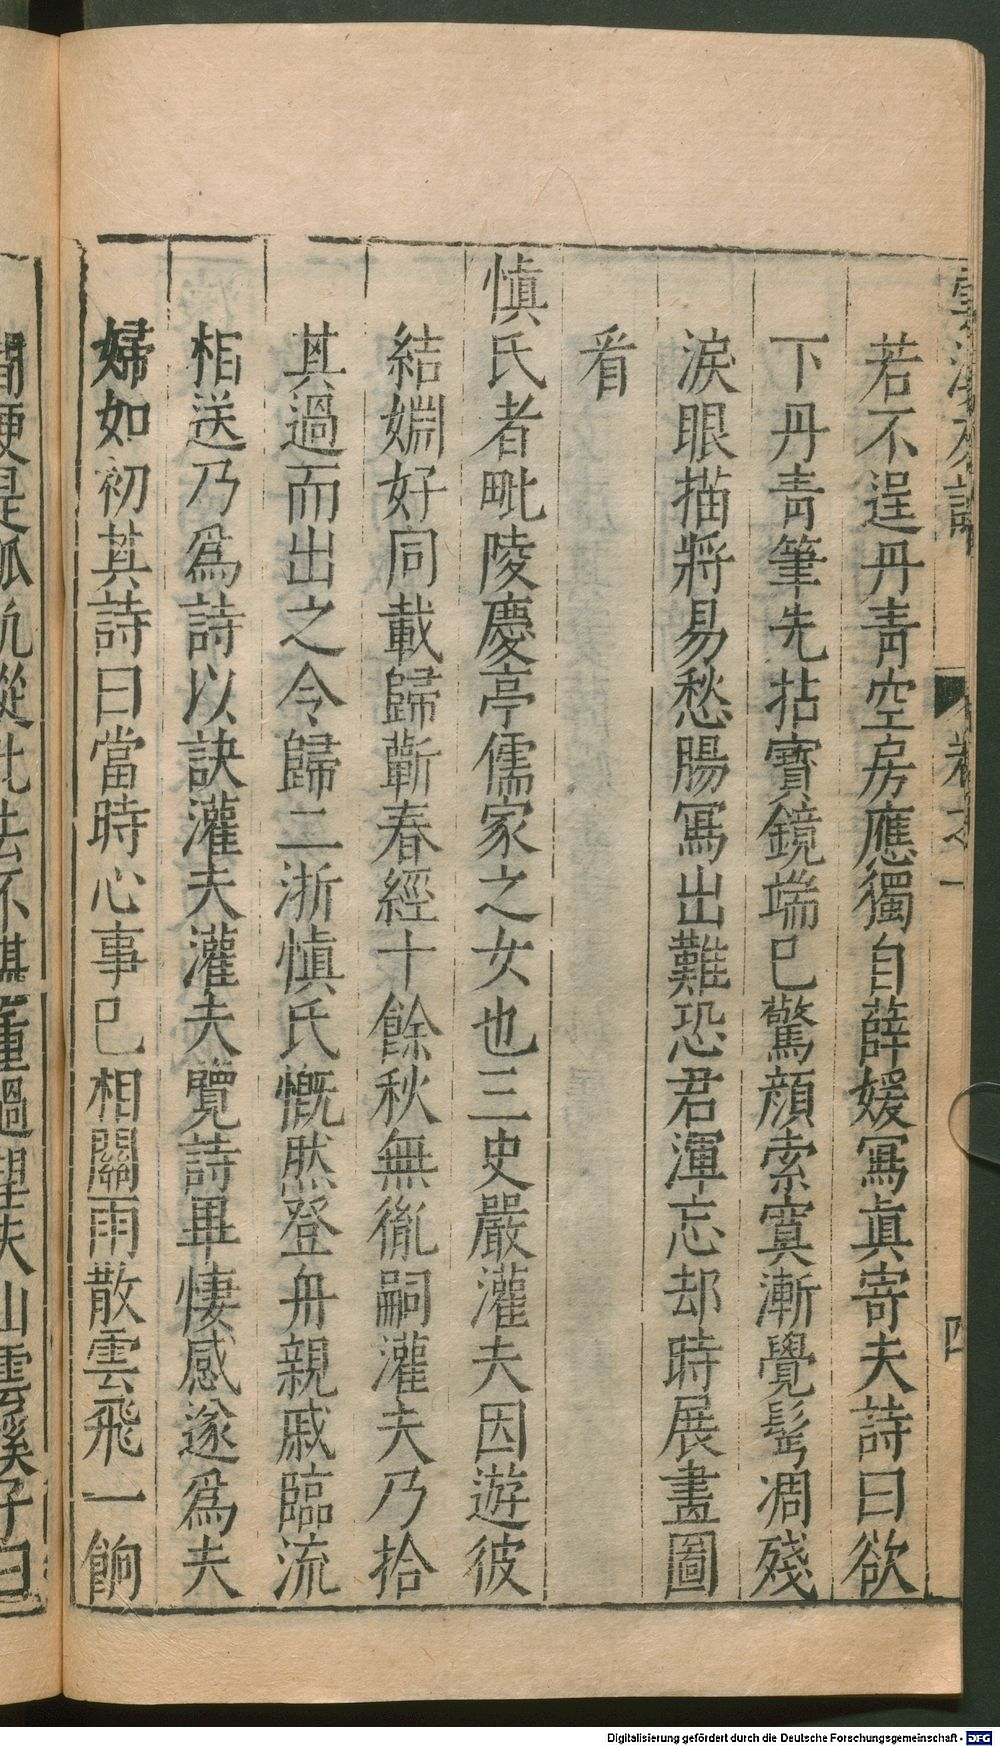 卷之一
四
若不逞丹靑空房應獨自薛媛寫眞寄夫詩曰欲
下丹靑筆先拈寶鏡端已驚顔索寞漸覺髩凋殘
淚眼描將易愁腸寫出難恐君渾忘却時展畫圖
看
愼氏者毗陵慶亭儒家之女也三史嚴灌夫因遊彼
結婣好同載歸蘄春經十餘秋無胤嗣灌夫乃拾
其過而出之令歸二浙愼氏慨然登舟親戚臨流
相送乃爲詩以訣灌夫灌夫覽詩畢悽感遂爲夫
婦如初其詩曰當時心事已相關雨散雲飛一餉
間便是孤帆從此去不堪重過望夫山雲溪子曰
Digitalisierung gefördert durch die Deutsche Forschungsgemeinschaft - DFG